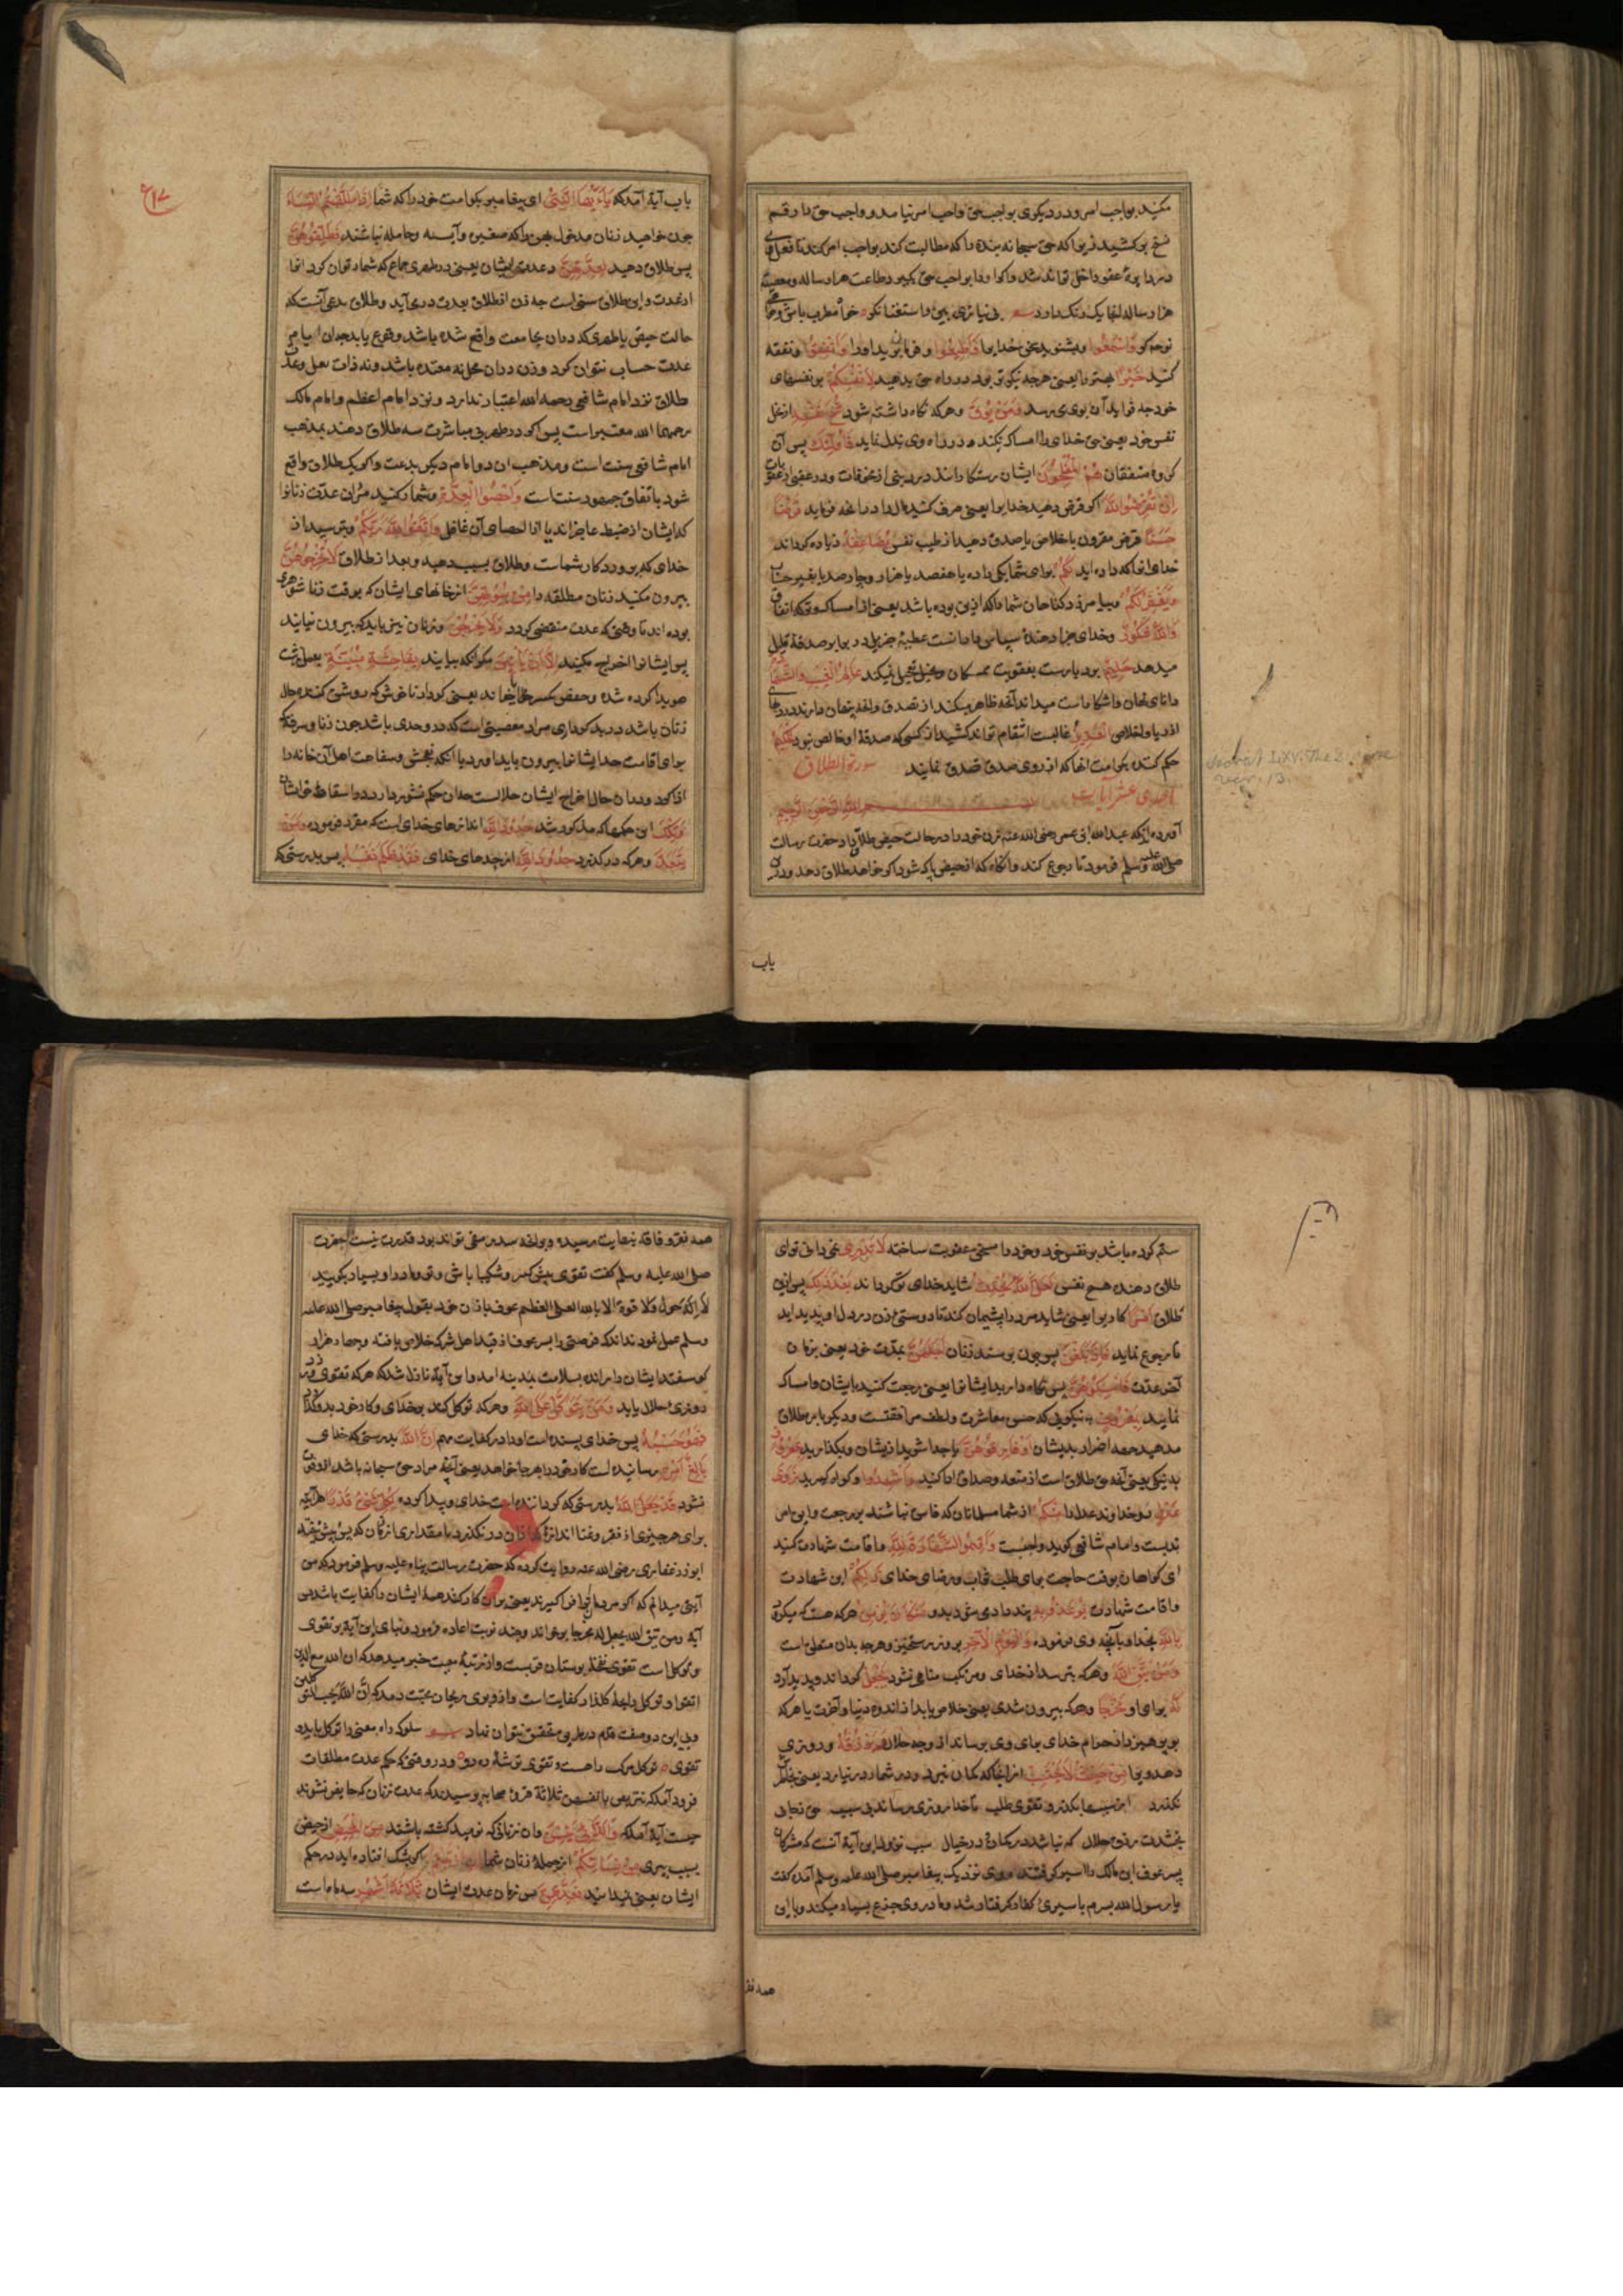 مکنید بواجب امر و در دیکری بواجب حق واجب امر نیامد و واجب حق را رقم
نسخ بر کشید زیرا که حق سبحانه بنده را که مطالبت کند بواجب امر کند تا فعل وی
در دایرهٔ عفو داخل تواند شد و اکر او را بواجب حق کیرد طاعت هزار ساله و معصیت
هزار ساله انجا یک رنک دارد
توجه کو وَاسْمَعُوا و بشنوید سخن خدایرا وَاَطِیعُوا و فرمان برید او را وَاَنْفِقُوا و نفقه
کنید خَیْرًا بهتر را یعنی هرچه نیکوتر بود در راه حق بدهید لِاَنْفُسِکُمْ بر نفسهای
خود چه فواید آن بوی می رسد وَمَنْ یُوقَ و هرکه نکاه داشته شود شُحَّ نَفْسِهِ از بخل
نفس خود یعنی حق خدای را امساک نکند و در راه وی بذل نماید فَاُولٰئِکَ پس آن
کروه منفقان هُمُ الْمُفْلِحُونَ ایشان رستکارانند
اِنْ تُقْرِضُوا اللّٰهَ اکر قرض دهید خدایرا یعنی صرف کنید مال را در انچه فرماید قَرْضًا
حَسَنًا قرض مقرون باخلاص یا صدقه دهید از طیب نفس یُضَاعِفْهُ زیاده کرداند
خدای انرا که داده اید لَکُمْ برای شما یکی را ده یا هفصد یا هزار و چهار صد یا بغیر حساب
وَیَغْفِرْ لَکُمْ و بیامرزد کناهان شما را که از پی بوده باشد یعنی از امساک و ترک انفاق
وَاللّٰهُ شَکُورٌ و خدای جزا دهندهٔ سپاس دارانست عطیهٔ جزیل در برابر صدقهٔ قلیل
میدهد حَلِیمٌ بردبارست بعقوبت ممسکان و بخیل تعجیل نمیکند عَالِمُ الْغَیْبِ وَالشَّهَادَةِ
دانای نهان و اشکاراست میداند آنچه ظاهر میکنند از تصدق و انچه پنهان دارند در دلهای
از ریا و اخلاص الْعَزِیزُ غالبست انتقام تواند کشید از کسی که صدقهٔ او خالص نبود الْحَکِیمُ
حکم کننده بکرامت انها که از روی صدق تصدق نمایند سورة الطلاق
احدی عشر آیات بسم الله الرحمن الرحیم
آورده اند که عبدالله ابن عمر رضی الله عنه زن خود را در حالت حیض طلاق داد حضرت رسالت
صلی الله علیه وسلم فرمود تا رجوع کند و انکاه که از حیض پاک شود اکر خواهد طلاق دهد و درین
باب
باب آیة آمد که یَا اَیُّهَا النَّبِیُّ ای پیغامبر بکو امت خود را که شما اِذَا طَلَّقْتُمُ النِّسَاءَ
چون خواهید زنان مدخول بهن را که صغیره و آیسه و حامله نباشند فَطَلِّقُوهُنَّ
پس طلاق دهید لِعِدَّتِهِنَّ در عدت ایشان یعنی در طهری جماع که شمار توان کرد انرا
از عدت و این طلاق سنی است چه زن از طلاق بعدت درمی آید و طلاق بدعی آنست که
حالت حیض یا طهری که در ان مجامعت واقع شده باشد وقوع یابد چه ان ایام از
عدت حساب نتوان کرد و زن در ان محل نه معتده باشد و نه ذات بعل و عدد
طلاق نزد امام شافعی رحمه الله اعتبار ندارد و نزد امام اعظم و امام مالک
رحمهما الله معتبر است پس اکر در طهر بی مباشرت سه طلاق دهند بمذهب
امام شافعی سنت است و مذهب ان دو امام دیکر بدعت و اکر یک طلاق واقع
شود باتفاق جمهور سنت است وَاَحْصُوا الْعِدَّةَ و شمار کنید مران عدت زنانرا
که ایشان از ضبط عاجز اند یا از احصای آن غافل وَاتَّقُوا اللّٰهَ رَبَّکُمْ و بترسید از
خدای که پروردکار شماست و طلاق بسبب دهید و بعد از طلاق لَا تُخْرِجُوهُنَّ
بیرون مکنید زنان مطلقه را مِنْ بُیُوتِهِنَّ از خانهای ایشان که بوقت زناشوهری
بوده اند تا وقتی که عدت منقضی کردد وَلَا یَخْرُجْنَ و زنان نیز باید که بیرون نیایند
پس ایشانرا اخراج مکنید اِلَّا اَنْ یَأْتِینَ مکر انکه بیایند بِفَاحِشَةٍ مُبَیِّنَةٍ بعمل زشت
هویدا کرده شده و حفص بکسر یا خواند یعنی کردار ناخوش که روشن کننده حال
زنان باشد در بدکرداری مراد معصیتی است که در وحدی باشد چون زنا و سرقه که
برای اقامت حد ایشانرا بیرون باید اورد یا انکه بفحش و سفاهت اهل آن خانه را
وَتِلْکَ این حکمها که مذکور شد حُدُودُ اللّٰهِ اندازهای خدای است که مقرر فرموده وَمَنْ
یَتَعَدَّ و هرکه درکذرد حُدُودَ اللّٰهِ از حدهای خدای فَقَدْ ظَلَمَ نَفْسَهُ پس بدرستی که
ستم کرده باشد بر نفس خود و خود را مستحق عقوبت ساخته لَا تَدْرِی نمی دانی تو ای
طلاق دهنده هیچ نفس لَعَلَّ اللّٰهَ یُحْدِثُ شاید خدای نو کرداند بَعْدَ ذٰلِکَ پس از این
طلاق اَمْرًا کاریرا یعنی شاید مرد را پشیمان کند تا دوستی زن در دل او پدید آید
تا رجوع نماید فَاِذَا بَلَغْنَ پس چون برسند زنان اَجَلَهُنَّ بمدت خود یعنی بزمان
آخر عدت فَاَمْسِکُوهُنَّ پس نکاه دارید ایشانرا یعنی رجعت کنید با ایشان و امساک
نمایید بِمَعْرُوفٍ به نیکویی که حسن معاشرت و لطف مرافقتست و دیکر بار طلاق
مدهید جهة اضرار بدیشان اَوْ فَارِقُوهُنَّ یا جدا شوید از ایشان و بکذارید بِمَعْرُوفٍ
بنیکی یعنی آنچه حق طلاق است از متعه و صداق ادا کنید وَاَشْهِدُوا و کواه کیرید ذَوَیْ
عَدْلٍ دو خداوند عدل را مِنْکُمْ از شما مسلمانان که فاسق نباشند بر رجعت و این امر
ندبست و امام شافعی کوید واجبست وَاَقِیمُوا الشَّهَادَةَ لِلّٰهِ و اقامت شهادت کنید
ای کواهان بوقت حاجت برای طلب ثواب و رضای خدای ذٰلِکُمْ این شهادت
و اقامت شهادت یُوعَظُ بِهِ پند داده می شود بدو مَنْ کَانَ یُؤْمِنُ هرکه هست که میکرود
بِاللّٰهِ بخدا و بآنچه وی فرموده وَالْیَوْمِ الْآخِرِ بروز رستخیز و هرچه بدان متعلق است
وَمَنْ یَتَّقِ اللّٰهَ و هرکه بترسد از خدای و مرتکب مناهی نشود یَجْعَلْ کرداند و پدید آرد
لَهُ برای او مَخْرَجًا
بپرهیزد از حرام خدای برای وی برساند از وجه حلال وَیَرْزُقْهُ و روزی
دهد ویرا مِنْ حَیْثُ لَا یَحْتَسِبُ از انجا که کمان نبرد و در شمار در نیارد یعنی بخاطر
نکذرد
بخشدت رزق حلال که نباشد در کمان و در خیال سبب نزول این آیة آنست که مشرکان
پسر عوف ابن مالک را اسیر کرفتند و وی نزدیک پیغامبر صلی الله علیه وسلم آمد کفت
یا رسول الله پسرم باسیری کفار کرفتار شد و مادر وی جزع بسیار میکند و با این
همه فقر
همه فقر و فاقه بنهایت رسیده
صلی الله علیه وسلم کفت تقوی پیش کیر و شکیبا باش و تو و مادر او بسیار بکویید
لا حول ولا قوة الا بالله العلی العظیم عوف با زن خود بقول پیغامبر صلی الله علیه
وسلم عمل نمودند اندک فرصتی را پسر عوف از قید اهل شرک خلاص یافته و چهار هزار
کوسفند ایشان را رانده بسلامت بمدینه امد و این آیة نازل شد که هرکه تقوی ورزد
روزی حلال یابد وَمَنْ یَتَوَکَّلْ عَلَی اللّٰهِ و هرکه توکل کند بر خدای و کار خود بدو کذارد
فَهُوَ حَسْبُهُ پس خدای بسنده است او را در کفایت مهم اِنَّ اللّٰهَ بدرستی که خدای
بَالِغُ اَمْرِهِ رساننده است کار خود را هر جا خواهد یعنی آنچه مراد حق سبحانه باشد از او فوت
نشود قَدْ جَعَلَ اللّٰهُ بدرستی که کردانیده است خدای و پیدا کرده لِکُلِّ شَیْءٍ قَدْرًا
برای هر چیزی از فقر و غنا اندازهٔ که از ان در نکذرد یا مقداری از زمان که پس و پیش نیفتد
ابوذر غفاری رضی الله عنه روایت کرده که حضرت رسالت پناه علیه وسلم فرمود که من
آیتی میدانم که اکر مردمان انرا فرا کیرند یعنی بران کار کنند همهٔ ایشان را کفایت باشد پس
آیة ومن یتق الله یجعل له مخرجا بر خواند و چند نوبت اعاده فرمود و بنای این آیة بر تقوی
و توکل است تقوی نخل بوستان قربست و از رتبهٔ معیت خبر میدهد که ان الله مع الذین
اتقوا و توکل رایحهٔ کلزار کفایت است و از و بوی ریحان محبت دمد که ان الله یحب المتوکلین
و بی این دو صفت قدم در طریق تحقیق نتوان نهاد سلوک راه معنی را توکل باید و
تقوی توکل مرکب راهست و تقوی توشهٔ رهرو و در وقتی که حکم عدت مطلقات
فرود آمد که یتربصن بانفسهن ثلاثة قروء صحابه پرسیدند که عدت زنان که حایض نشوند
چیست آیة آمد که وَاللَّائِی یَئِسْنَ و ان زنانی که نومید کشته باشند مِنَ الْمَحِیضِ از حیض
بسبب پیری مِنْ نِسَائِکُمْ از جملهٔ زنان شما اِنِ ارْتَبْتُمْ اکر بشک افتاده اید در حکم
ایشان یعنی نیدانید فَعِدَّتُهُنَّ پس زمان عدت ایشان ثَلَاثَةُ اَشْهُرٍ سه ماه است